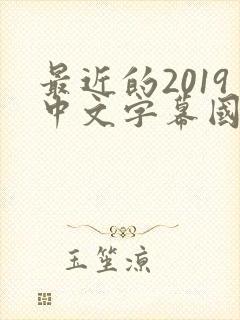 最近的2019
中文字幕國
玉笙凉